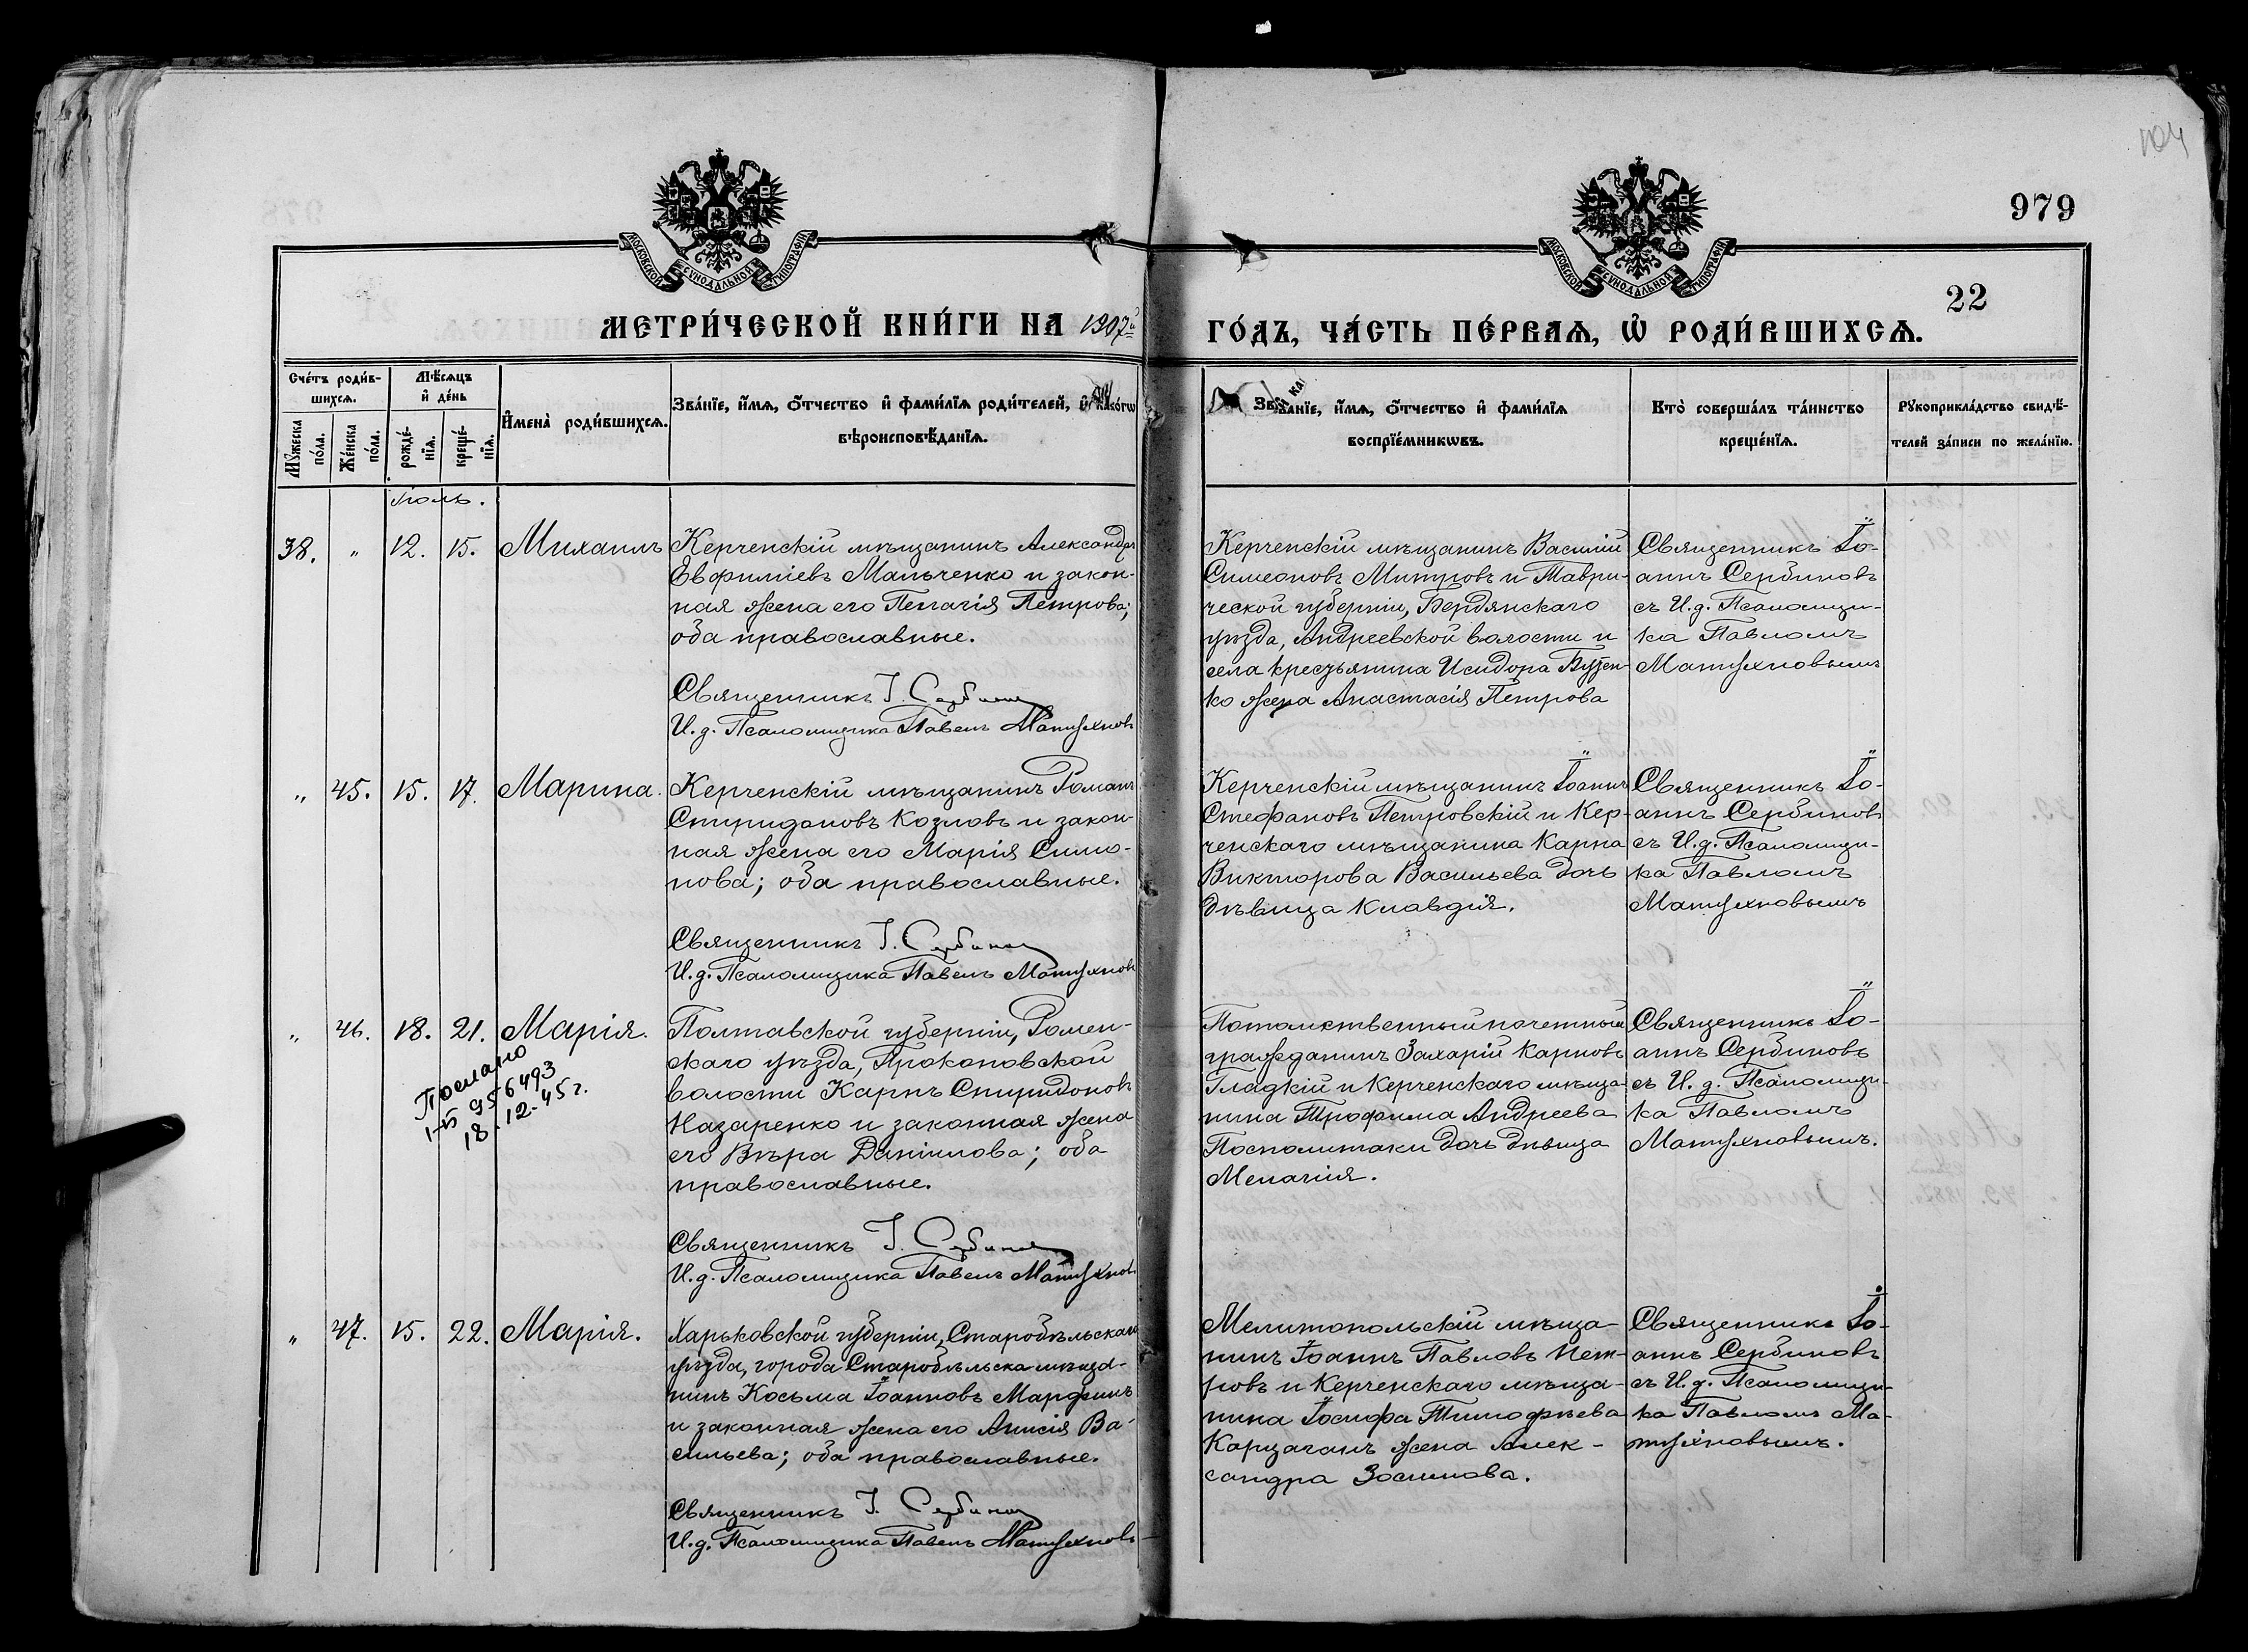 104
979
22
МОСКОВСКОЙ СУНОДАЛЬНОЙ ТИПОГРАФІИ
МОСКОВСКОЙ СУНОДАЛЬНОЙ ТИПОГРАФІИ
МЕТРИ́ЧЕСКОЙ КНИ́ГИ НА 1907й
ГО́ДЪ, ЧА́СТЬ ПЕ́РВАѦ, Ѡ҆ РОДИ́ВШИХСѦ.
Сче́тъ роди́в-
шихсѧ.
Мꙋжеска по́ла.
Же́нска по́ла.
Мѣ́сѧцъ
и҆ де́нь
рожде́-
нїѧ.
креще́-
нїѧ.
И҆мена̀ роди́вшихсѧ.
Зва́нїе, и҆́мѧ, ѻ҆́тчество и҆ фами́лїѧ роди́телей, и҆ како́гѡ
вѣроисповѣ́данїѧ.
Зва́нїе, и҆́мѧ, ѻ҆́тчество и҆ фами́лїѧ
воспрїе́мникѡвъ.
Кто̀ соверша́лъ та́инство
креще́нїѧ.
Рꙋкоприкла́дство свидѣ́-
телей за́писи по жела́нїю.
Іюль.
38. " 12. 15. Михаилъ
Керченскій мѣщанинъ Александръ
Евфиміевъ Мальченко и закон-
ная жена его Пелагія Петрова;
оба православные.
Священникъ І. Сербинов
И.д. Псаломщика Павелъ Матухновъ
Керченскій мѣщанинъ Василій
Симеоновъ Митровъ и Таври-
ческой губерніи, Бердянскаго
уѣзда, Андреевской волости и
села крестьянина Исидора Бузен-
ко жена Анастасія Петрова
Священникъ Іо-
аннъ Сербиновъ
съ И.д. Псаломщи-
ка Павломъ
Матухновымъ
" 45. 15. 17. Марина.
Керченскій мѣщанинъ Романъ
Спиридоновъ Козловъ и закон-
ная жена его Марія Симо-
нова; оба православные.
Священникъ І. Сербинов
И.д. Псаломщика Павелъ Матухновъ
Керченскій мѣщанинъ Іоаннъ
Стефановъ Петровскій и Кер-
ченскаго мѣщанина Карпа
Викторова Васильева дочь
дѣвица Клавдія.
Священникъ Іо-
аннъ Сербиновъ
съ И.д. Псаломщи-
ка Павломъ
Матухновымъ
" 46. 18. 21. Марія.
Послано
956493
18.12-45г.
Полтавской губерніи, Ромен-
скаго уѣзда, Прокоповской
волости Карпъ Спиридоновъ
Назаренко и законная жена
его Вѣра Даніилова; оба
православные.
Священникъ І. Сербинов
И.д. Псаломщика Павелъ Матухновъ
Потомственный почетный
гражданинъ Захарій Карповъ
Гладкій и Керченскаго мѣща-
нина Трофима Андреева
Посполитаки дочь дѣвица
Мелагія.
Священникъ Іо-
аннъ Сербиновъ
съ И.д. Псаломщи-
ка Павломъ
Матухновымъ.
" 47. 15. 22. Марія.
Харьковской губерніи, Старобѣльскаго
уѣзда, города Старобѣльска мѣща-
нинъ Косьма Іоанновъ Марфинъ
и законная жена его Анисія Ва-
сильева; оба православные.
Священникъ І. Сербинов
И.д. Псаломщика Павелъ Матухновъ
Мелитопольскій мѣща-
нинъ Іоаннъ Павловъ Пет-
ровъ и Керченскаго мѣща-
нина Іосифа Тимофѣева
Карцаганъ жена Алек-
сандра Зосимова.
Священникъ Іо-
аннъ Сербиновъ
съ И.д. Псаломщи-
ка Павломъ Ма-
тухновымъ.